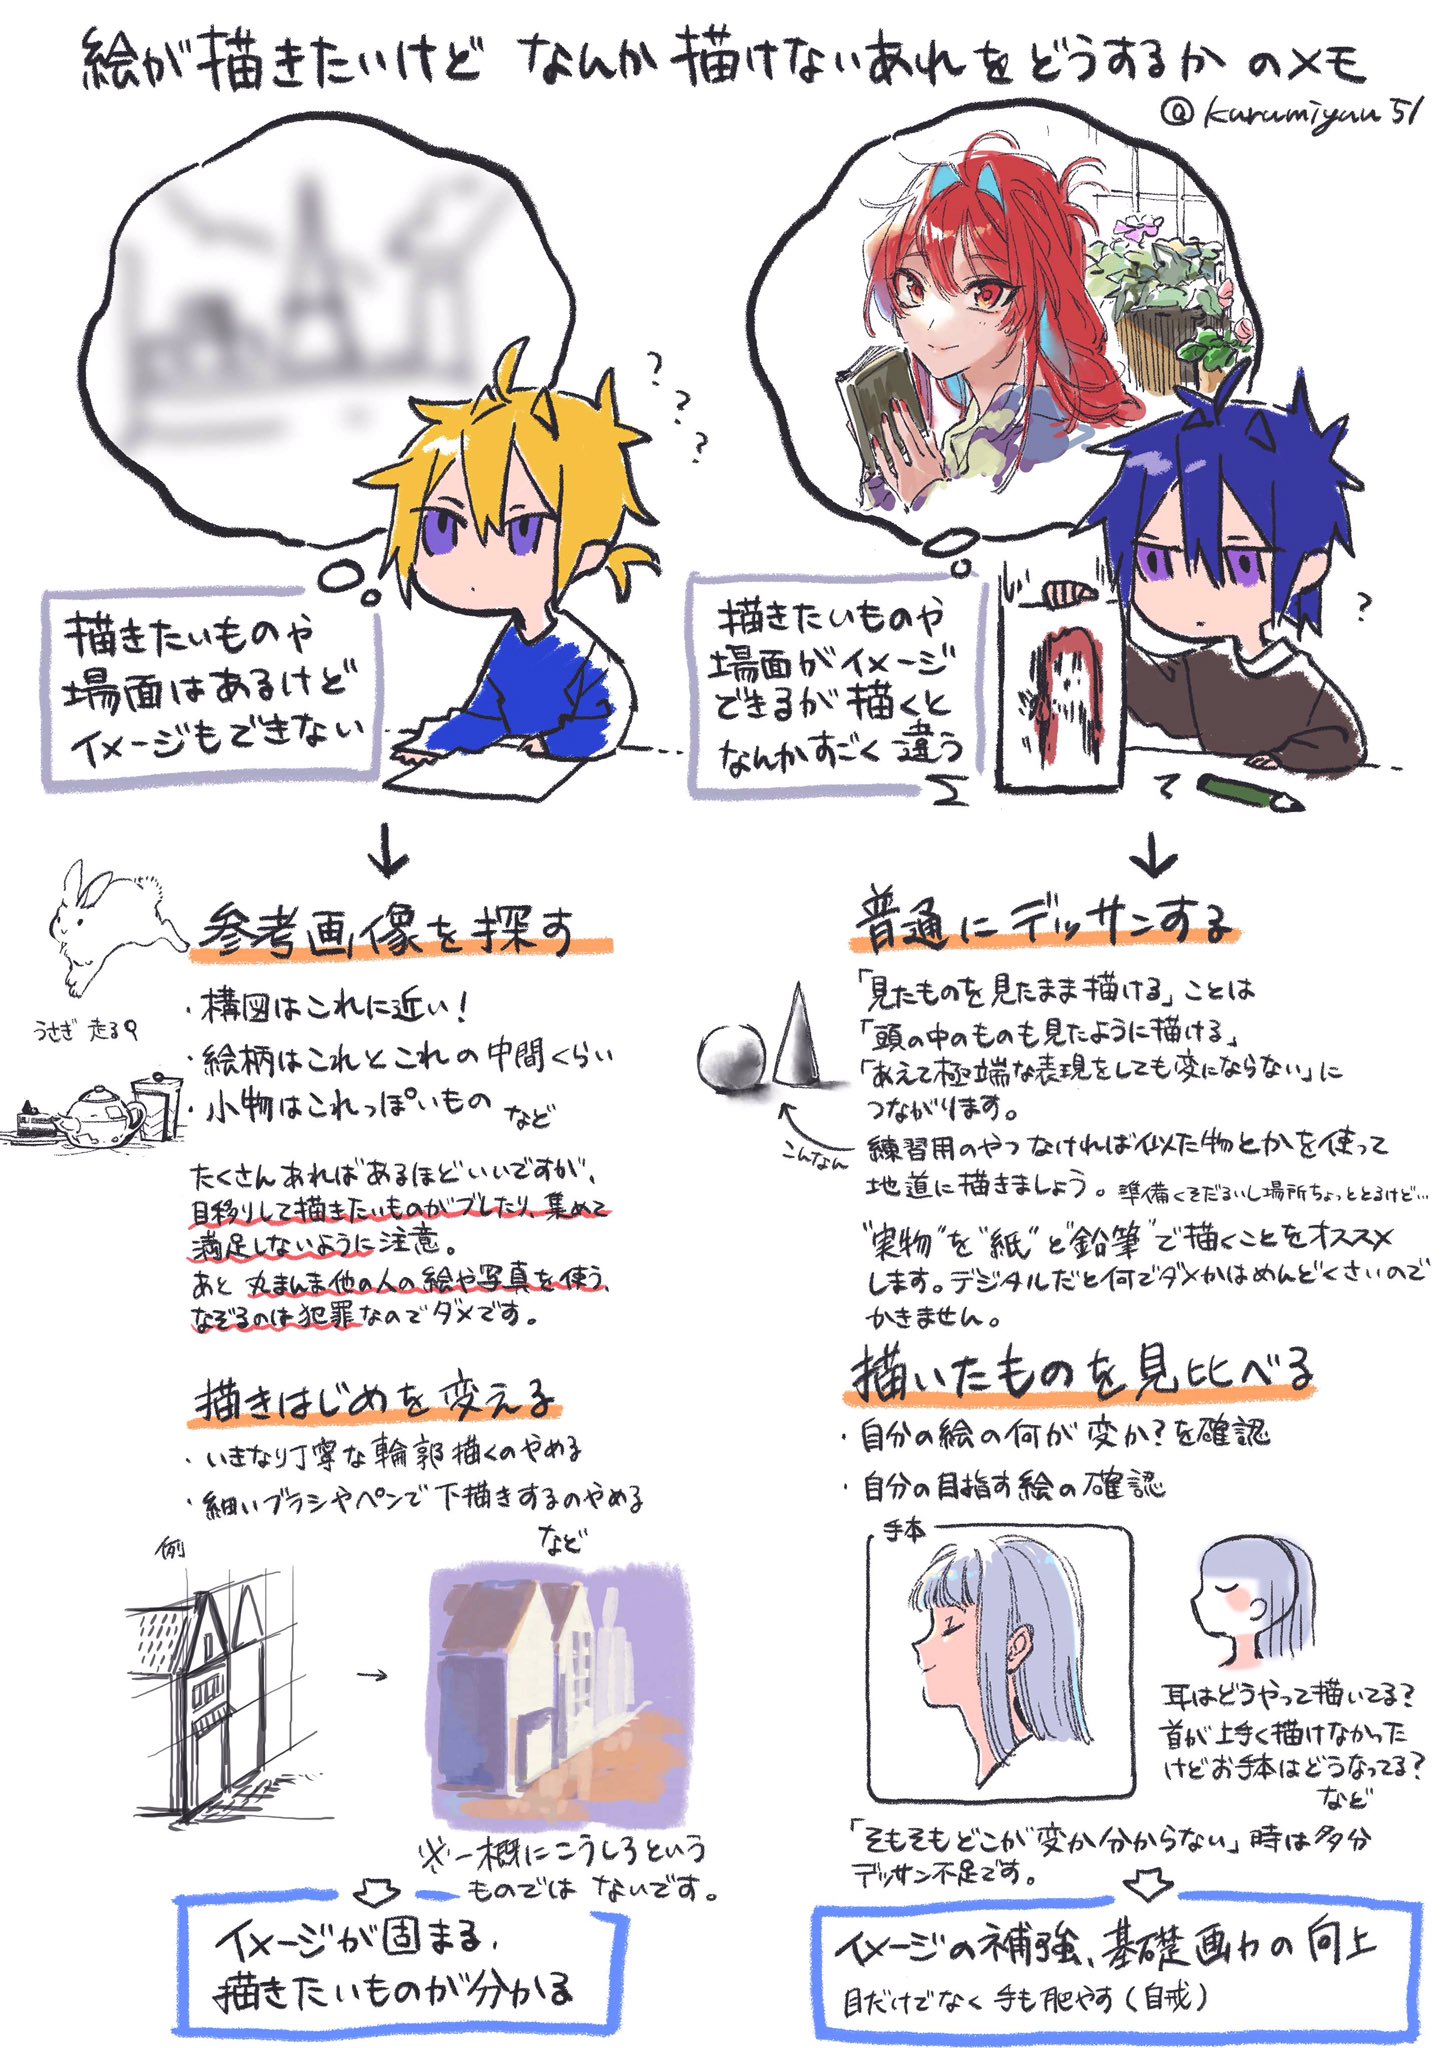 絵が描きたいけど なんか描けないあれをどうするか のメモ
@kurumiyuu51
???
描きたいものや
場面はあるけど
イメージもできない
描きたいものや
場面がイメージ
できるが描くと
なんかすごく違う
?
↓
参考画像を探す
うさぎ 走る
・構図はこれに近い!
・絵柄はこれとこれの中間くらい
・小物はこれっぽいもの など
たくさんあればあるほどいいですが、
目移りして描きたいものがブレたり、集めて
満足しないように注意。
あと 丸まんま他の人の絵や写真を使う、
なぞるのは犯罪なのでダメです。
描きはじめを変える
・いきなり丁寧な輪郭描くのやめる
・細いブラシやペンで下描きするのやめる
など
例
→
※一概にこうしろという
ものでは ないです。
イメージが固まる、
描きたいものが分かる
↓
普通にデッサンする
「見たものを見たまま描ける」ことは
「頭の中のものも見たように描ける」
「あえて極端な表現をしても変にならない」に
つながります。
こんなん
練習用のやつなければ似た物とかを使って
地道に描きましょう。準備くそだるいし場所ちょっととるけど…
"実物"を"紙"と"鉛筆"で描くことをオススメ
します。デジタルだと何でダメかはめんどくさいので
かきません。
描いたものを見比べる
・自分の絵の何が変か?を確認
・自分の目指す絵の確認
手本
耳はどうやって描いてる?
首が上手く描けなかった
けどお手本はどうなってる?
など
「そもそもどこが変か分からない」時は多分
デッサン不足です。
イメージの補強、基礎画力の向上
目だけでなく手も肥やす(自戒)